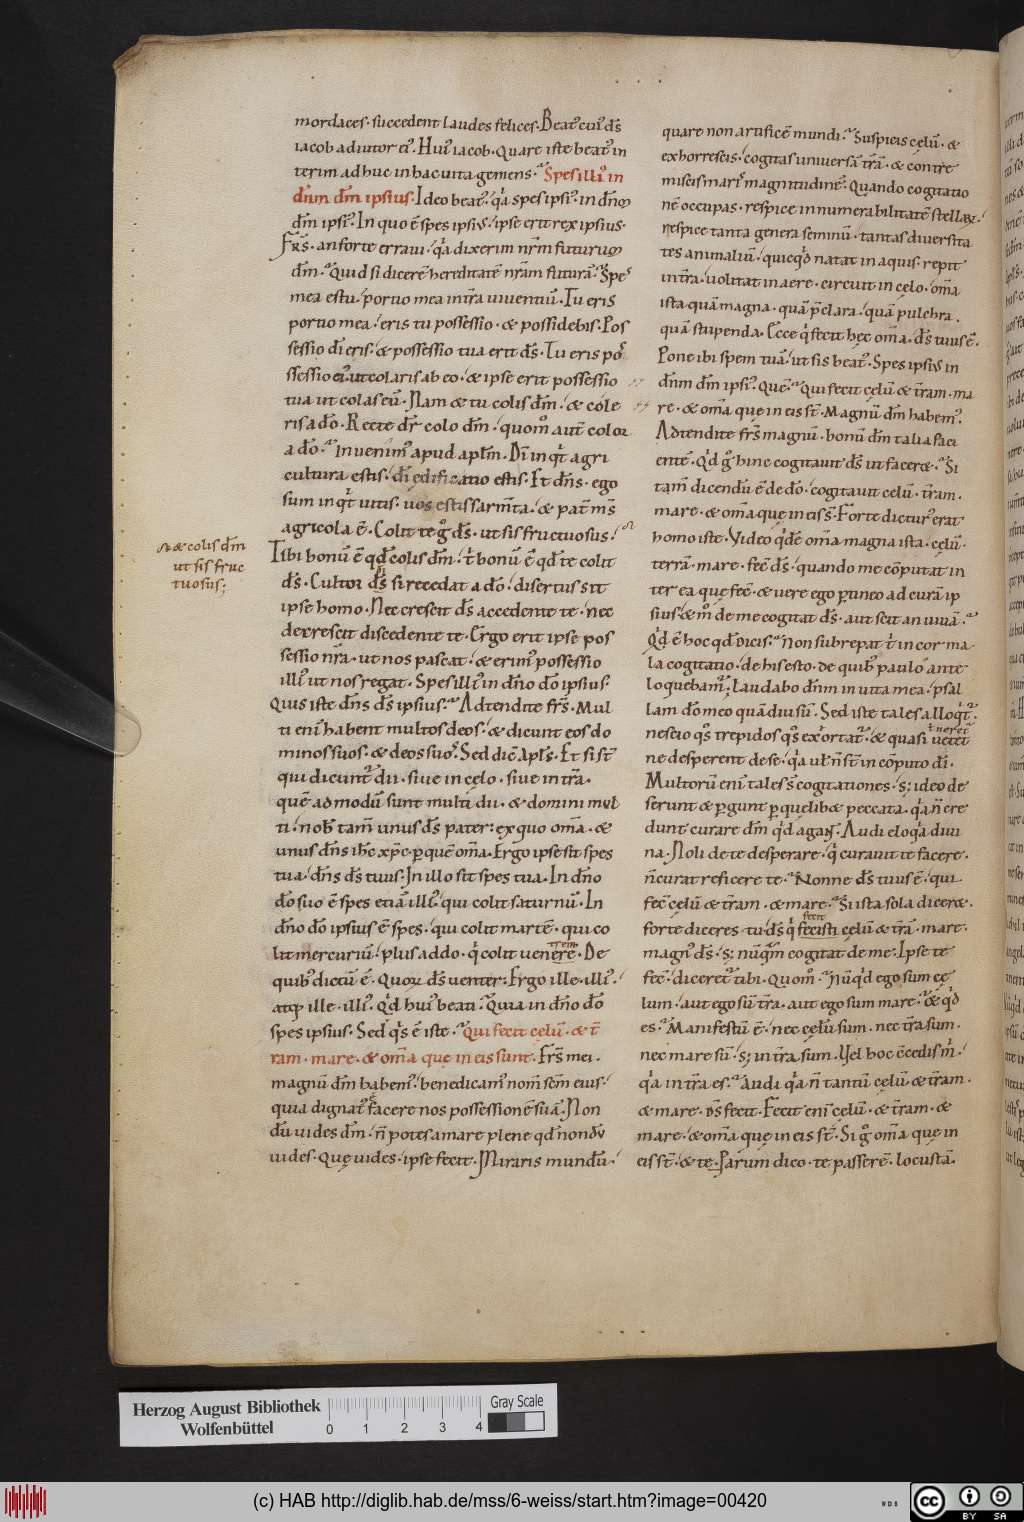 mordaces. succedent laudes felices. Beat᷒ cui᷒ d̄s
iacob adiutor ei᷒. Hui᷒ iacob. Quare iste beat᷒ in
terim adhuc in hac uita gemens. Spes illi᷒ in
dn̄m dm̄ ipsius. Ideo beat᷒. q̇a spes ipsi᷒ in dn̄o
dm̄ ipsi᷒. In quo ē spes ipsi᷒. ipse erit rex ipsius.
Frs̄. an forte erraui. q̇a dixerim nr̄m futurum
dm̄. Quid si dicerē hereditatē nr̄am futurā. Spes
mea es tu. portio mea in tr̄a uiuentiū. Tu eris
portio mea. eris tu possessio. & possidebis. Pos
sessio di᷒ eris. & possessio tua erit d̄s. Tu eris po
ssessio ei᷒. ut colaris ab eo. & ipse erit possessio
tua ut colas eū. Nam & tu colis dm̄. & cole
ris a dō. Recte dr̄ colo dm̄. quom̊ aut̄ color
a dō. Inuenim᷒ apud apl̄m. Dī inq̇t agri
cultura estis. dī ędificatio estis. Et dn̄s. ego
sum inq̇t uitis. uos estis sarm̄ta. & pat̄ m̄s
agricola ē. Colit te g̊ d̄s. ut sis fructuosus.
& colis dm̄
ut sis fruc
tuosus;
Tibi bonū ē qd̄ colis dm̄. t̄ bonū ē qd̄ te colit
d̄s. Cultor d̄s si recedat a dō. disertus sit
ipse homo. Nec crescit d̄s accedente te. nec
decrescit discedente te. Ergo erit ipse pos
sessio nr̄a. ut nos pascat. & erim᷒ possessio
illi᷒ ut nos regat. Spes illi᷒ in dn̄o dō ipsius.
Quis iste dn̄s d̄s ipsius. Adtendite frs̄. Mul
ti eni᷒ habent multos deos. & dicunt eos do
minos suos. & deos suos. Sed dic̄ apl̄s. Et si st̄
qui dicunt᷒ dii. siue in cęlo. siue in tr̄a.
quē admodū sunt multi dii. & domini mul
ti. nob̄ tam̄ unus d̄s pater. ex quo om̄a. &
unus dn̄s ih̄c xp̄c. p quē om̄a. Ergo ipse sit spes
tua. dn̄s d̄s tuus. In illo sit spes tua. In dn̄o
dō suo ē spes etiā illi᷒. qui colit saturnū. In
dn̄o dō ipsius ē spes. qui colit martē. qui co
lit mercuriū. Plus addo. q̇ colit uenere. De
quib᷒ dictū ē. Quoꝝ d̄s venter. Ergo ille. illi᷒.
atq; ille. illi᷒. Q̇d hui᷒ beati. Quia in dn̄o dō
spes ipsius. Sed q̇s ē iste. Qui fecit cęlū. & t̄
ram. mare. & om̄a quę in eis sunt. Frs̄ mei.
magnū dm̄ habem᷒. benedicam᷒ nom̄ sc̄m eius.
quia dignat᷒ facere nos possessionē suā. Non
dū uides dm̄. n̄ potes amare plene qd̄ nondū
uides. Quę uides. ipse fecit. Miraris mundū.
quare non artificē mundi. Suspicis cęlū. &
exhorrescis. cogitas uniuersā tr̄a. & contre
miscis mari᷒ magnitudinē. Quando cogitatio
nē occupas. respice innumerabilitatē stellaꝝ.
respice tanta genera seminū. tantas diuersita
tes animaliū. quicq̇d natat in aquis. repit
in tr̄a. uolitat in aere. circuit in cęlo. om̄a
ista quā magna. quā p̄clara. quā pulchra.
quā stupenda. Ecce q̇ fecit hęc om̄a. d̄s tuus ē.
Pone ibi spem tuā. ut sis beat᷒. Spes ipsi᷒ in
dn̄m dm̄ ipsi᷒. Quē. Qui fecit cęlū & tr̄am. ma
re. & om̄a quę in eis st̄. Magnū dm̄ habem᷒.
Adtendite frs̄ magnū. bonū dm̄ talia faci
entē. Q̇d g̊ hinc cogitauit d̄s ut facere. Si
tam̄ dicendū ē de dō. cogitauit cęlū. tr̄am.
mare. & om̄a quę in eis s̄. Forte dictur᷒ erat
homo iste. Video q̇dē om̄a magna ista. cęlū.
terrā. mare. fec̄ d̄s. quando me cōputat in
ter ea quę fec̄. & uere ego ptineo ad curā ip
sius. & m̊ de me cogitat d̄s. aut scit an uiuā.
Q̇d ē hoc qd̄ dicis. Non subrepat t̄ in cor ma
la cogitatio. de his esto. de quib᷒ paulo ante
loquebam᷒. Laudabo dn̄m in uita mea. psal
lam dō meo quādiu sū. Sed iste tales alloq̇t᷒.
nescio q̇s trepidos q̇s exortat᷒. & quasi uetet
ne desperent de se. q̇a ul̄ n̄ st̄ in cōputo dī.
Multorū eni᷒ tales s̄ cogitationes. s; ideo de
serunt & pgunt p quelib& peccata. q̇a n̄ cre
dunt curare dm̄ q̇d agant. Audi eloq̇a diui
na. Noli de te desperare. q̇ curauit te facere.
n̄ curat reficere te. Nonne d̄s tuus ē. qui
fec̄ cęlū & tr̄am. & mare. Si ista sola diceret.
forte diceres. tu d̄s q̇ fecisti cęlū & tr̄a. mare.
magn᷒ d̄s. s; nūq̇m cogitat de me. Ipse te
fec̄. diceret᷒ tibi. Quom̊. Nūq̇d ego sum cę
lum. aut ego sū tr̄a. aut ego sum mare. & q̇d
es. Manifestū ē. nec cęlū sum. nec tr̄a sum.
nec mare sū. s; in tr̄a sum. Vel hoc c̄cedis m̄.
q̇a in tr̄a es. Audi q̇a n̄ tantū cęlū & tr̄am.
& mare. d̄s fecit. Fecit eni᷒ cęlū. & tr̄am. &
mare. & om̄a quę in eis st̄. Si g̊ om̄a quę in
eis st̄. & te. Parum dico. te passerē. locustā.
Herzog August Bibliothek
Wolfenbüttel
0 1 2 3 4
Gray Scale
(c) HAB http://diglib.hab.de/mss/6-weiss/start.htm?image=00420
cc BY SA